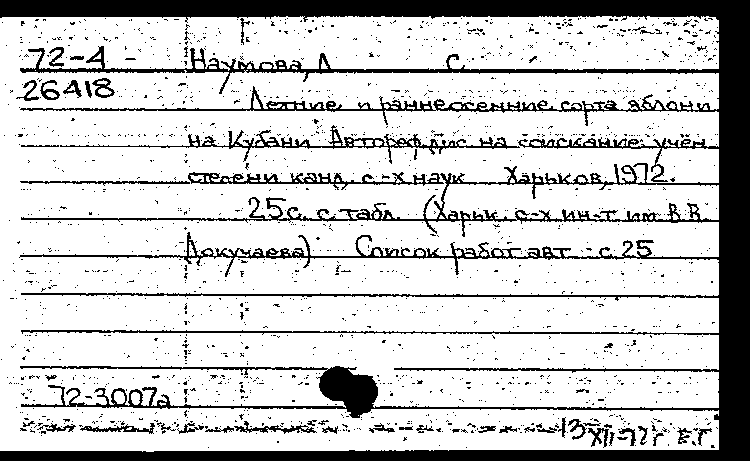 72-4 - Наумова, Л С.
26418
Летние и раннеосенние сорта яблони
на Кубани Автореф. дис. на соискание учен
степени канд. с.-х наук Харьков, 1972.
25 с. с табл. (Харьк. с-х ин-т им В.В.
Докучаева) Список работ авт: с. 25
72-3007а
13 XII-72г Е.Г.